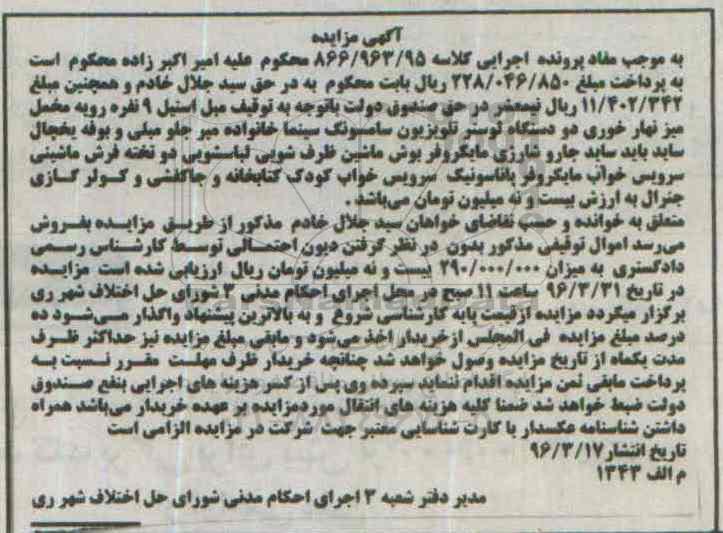 آگهی مزایده
به موجب مفاد پرونده اجرایی کلاسه ۸۶۶/۹۶۳/۹۵ محکوم علیه امیر اکبر زاده محکوم است
به پرداخت مبلغ ۲۲۸/۰۴۶/۸۵۰ ریال بابت محکوم به در حق سید جلال خادم و همچنین مبلغ
۱۱/۴۰۲/۳۴۲ ریال نیمعشر در حق صندوق دولت باتوجه به توقیف مبل استیل ۹ نفره رویه مخمل
میز نهار خوری دو دستگاه توستر تلویزیون سامسونگ سینما خانواده میر جلو مبلی و بوفه یخچال
ساید باید ساید جارو شارژی مایکروفر بوش ماشین ظرف شویی لباسشویی دو تخته فرش ماشینی
سرویس خواب مایکروفر پاناسونیک سرویس خواب کودک کتابخانه و جاکفشی و کولر گازی
جنرال به ارزش بیست و نه میلیون تومان می‌باشد .
متعلق به خوانده و حسب تقاضای خواهان سید جلال خادم مذکور از طریق مزایده بفروش
می‌رسد اموال توقیفی مذکور بدون در نظر گرفتن دیون احتمالی توسط کارشناس رسمی
دادگستری به میزان ۲۹۰/۰۰۰/۰۰۰ بیست و نه میلیون تومان ریال ارزیابی شده است مزایده
در تاریخ ۹۶/۳/۳۱ ساعت ۱۱ صبح در محل اجرای احکام مدنی ۳ شورای حل اختلاف شهر ری
برگزار میگردد مزایده ازقیمت پایه کارشناسی شروع و به بالاترین پیشنهاد واگذار می‌شود ده
درصد مبلغ مزایده فی المجلس ازخریدار اخذ می‌شود و مابقی مبلغ مزایده نیز حداکثر ظرف
مدت یکماه از تاریخ مزایده وصول خواهد شد چنانچه خریدار ظرف مهلت مقرر نسبت به
پرداخت مابقی ثمن مزایده اقدام ننماید سپرده وی پس از کسر هزینه های اجرایی بنفع صندوق
دولت ضبط خواهد شد ضمنا کلیه هزینه های انتقال موردمزایده بر عهده خریدار می‌باشد همراه
داشتن شناسنامه عکسدار یا کارت شناسایی معتبر جهت شرکت در مزایده الزامی است
تاریخ انتشار ۹۶/۳/۱۷
م الف ۱۳۴۳
مدیر دفتر شعبه ۳ اجرای احکام مدنی شورای حل اختلاف شهر ری